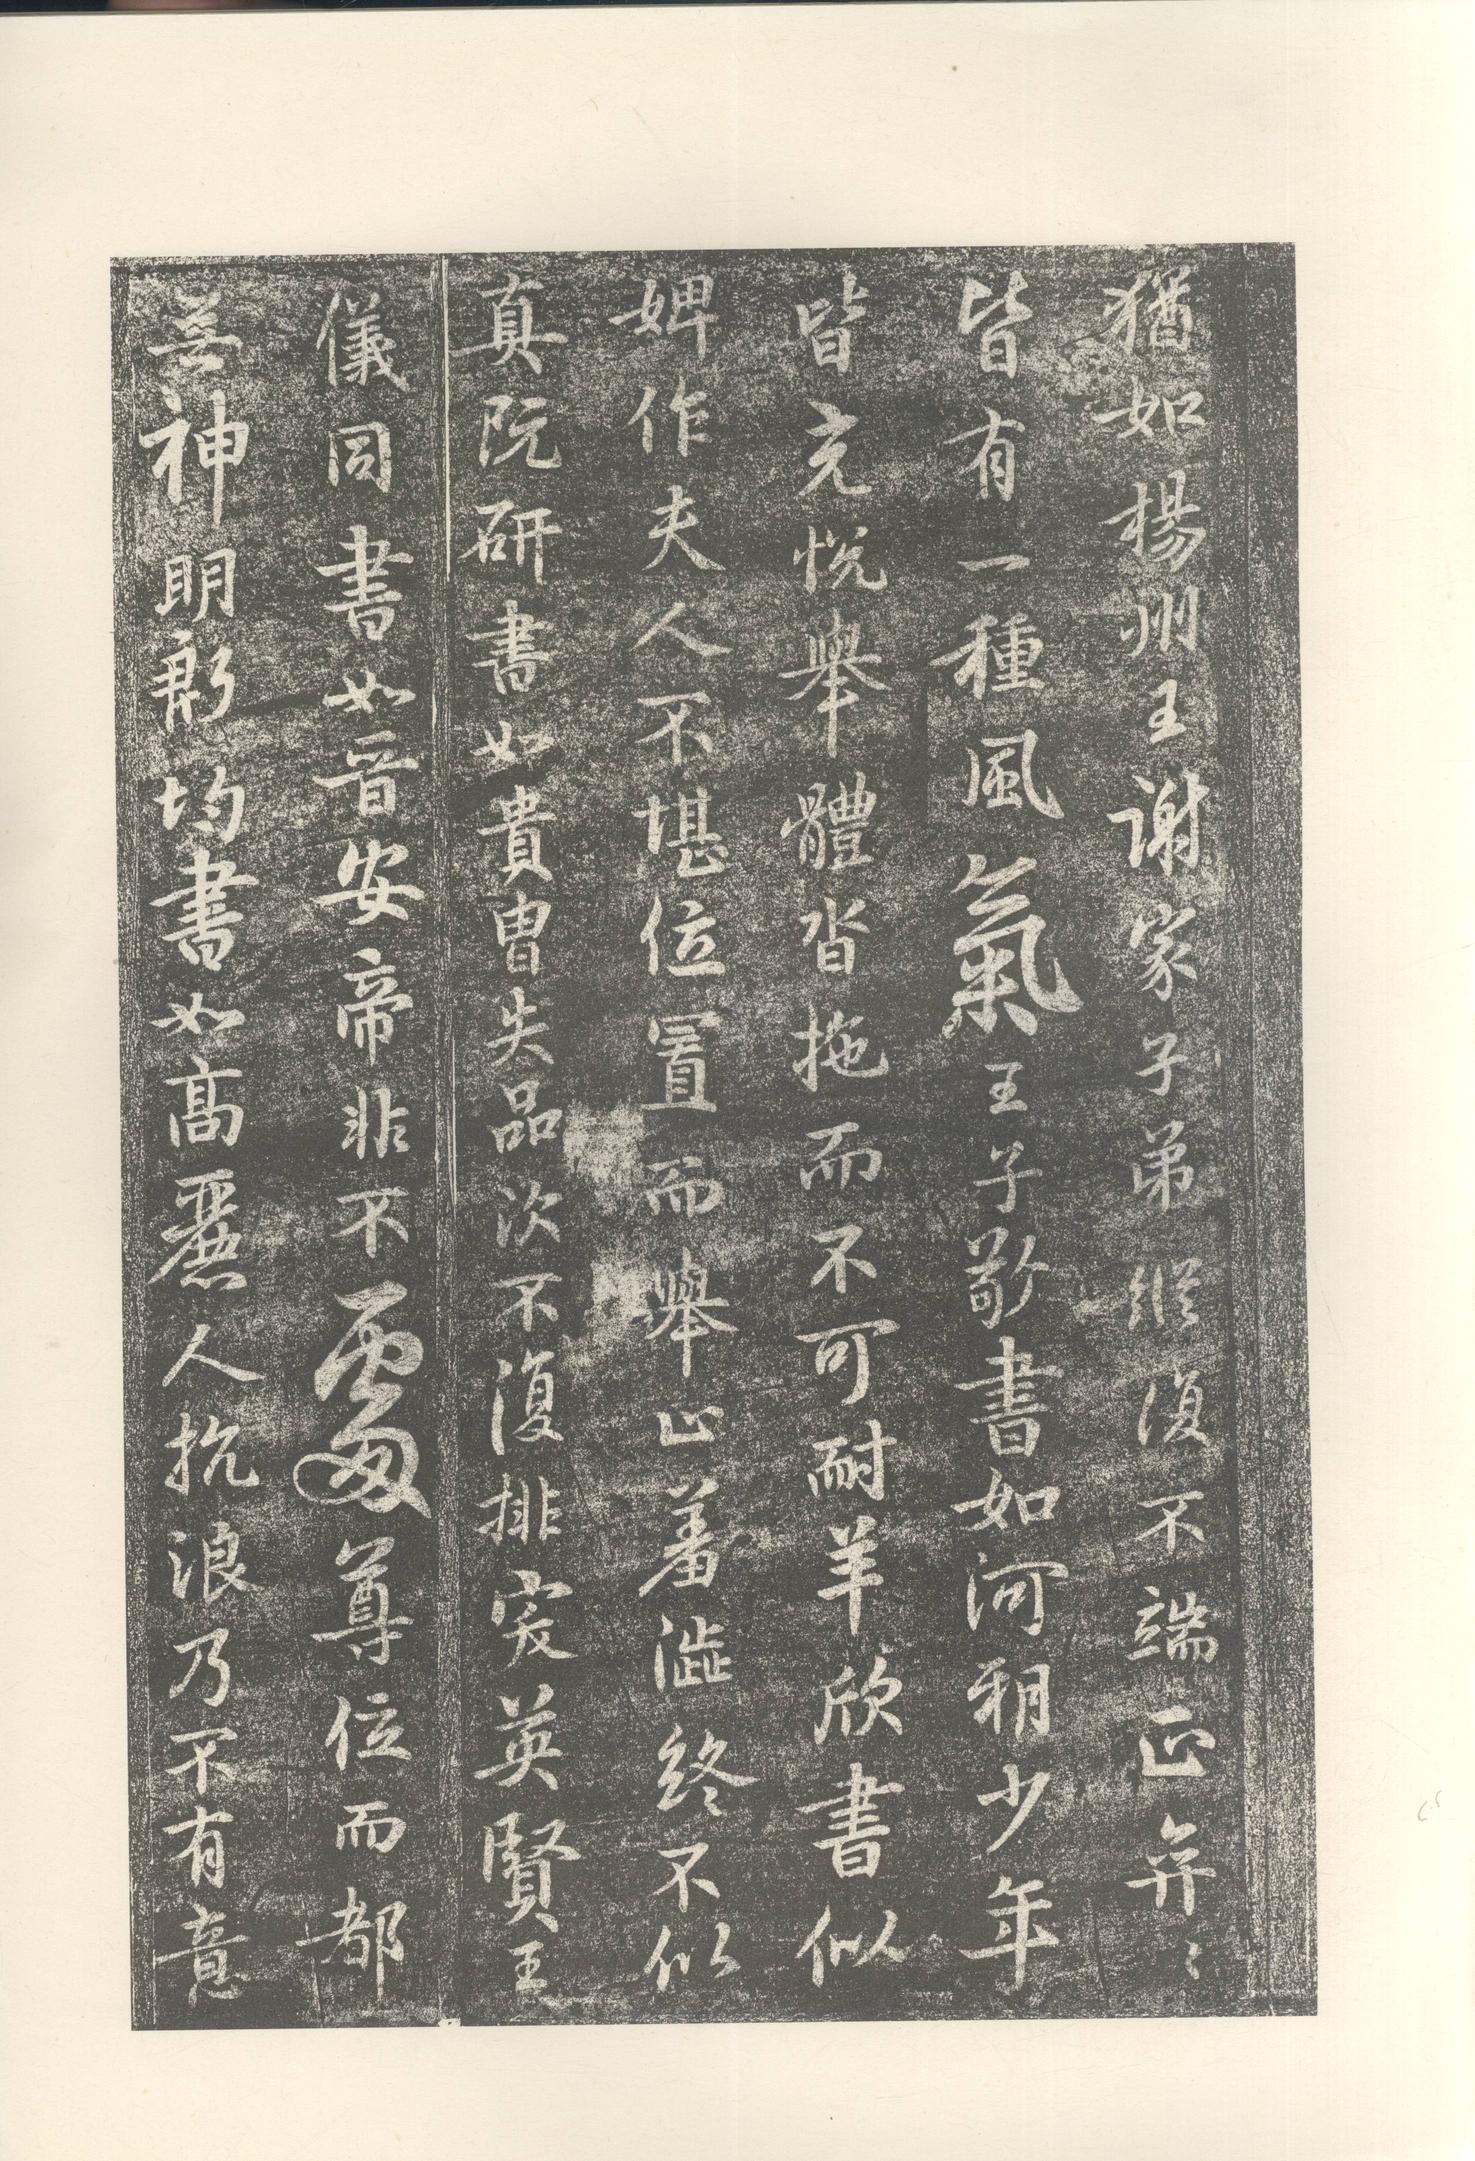 猶如楊州王謝家子弟縱復不端正弈〻
皆有一種風氣王子敬書如河朔少年
皆充悅舉體沓拖而不可耐羊欣書似
婢作夫人不堪位置而舉止羞澀終不似
真阮研書如貴胄失品次不復排突英賢王
儀同書如晉安帝非不處尊位而都
無神明殷均書如高麗人抗浪乃不有意